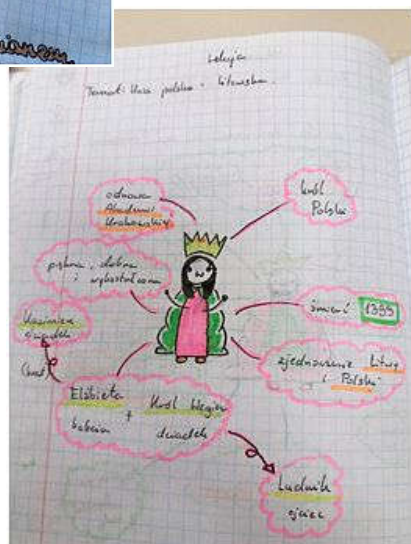 Lekcja
Temat: Unia polsko - litewska.
odnowa
Akademii
Krakowskiej
król
Polski
piękna, dobra
i wykształcona
śmierć 1399
Kazimierz
dziadek
zjednoczenie Litwy
i Polski
Elżbieta + Król Węgier
babcia dziadek
Ludwik
ojciec